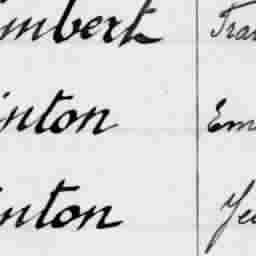 mbert Tra
inton Em
inton Ye